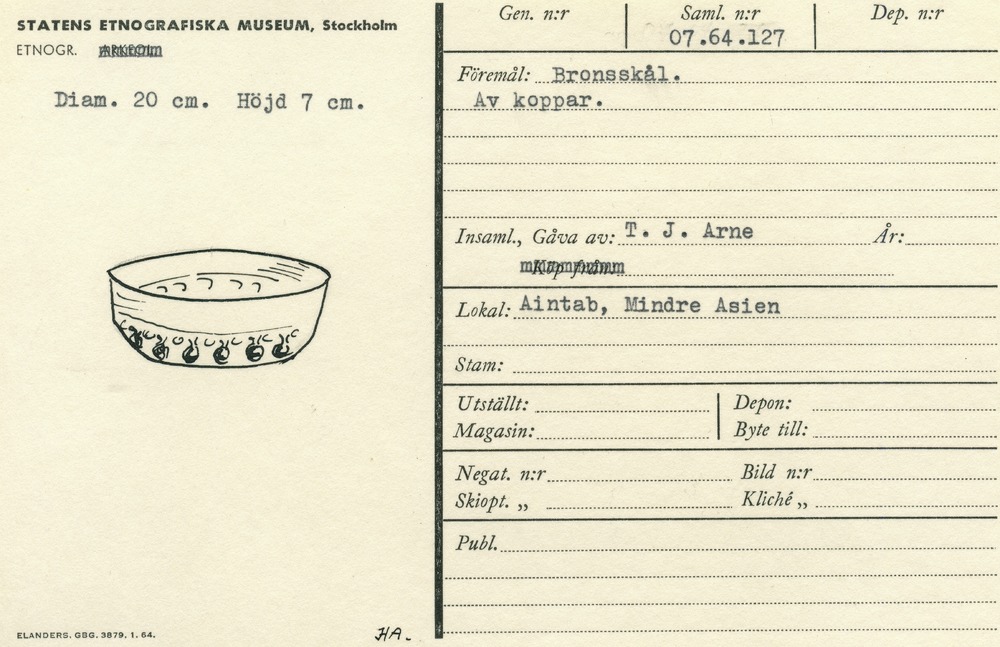 STATENS ETNOGRAFISKA MUSEUM, Stockholm
ETNOGR. ARKEOL.
Diam. 20 cm. Höjd 7 cm.
ELANDERS. GBG. 3879. 1. 64.
HA.
Gen. n:r Saml. n:r Dep. n:r
07.64.127
Föremål: Bronsskål.
Av koppar.
Insaml., Gåva av: T. J. Arne År:
Köp från:
Lokal: Aintab, Mindre Asien
Stam:
Utställt: Depon:
Magasin: Byte till:
Negat. n:r Bild n:r
Skiopt. „ Kliché „
Publ.